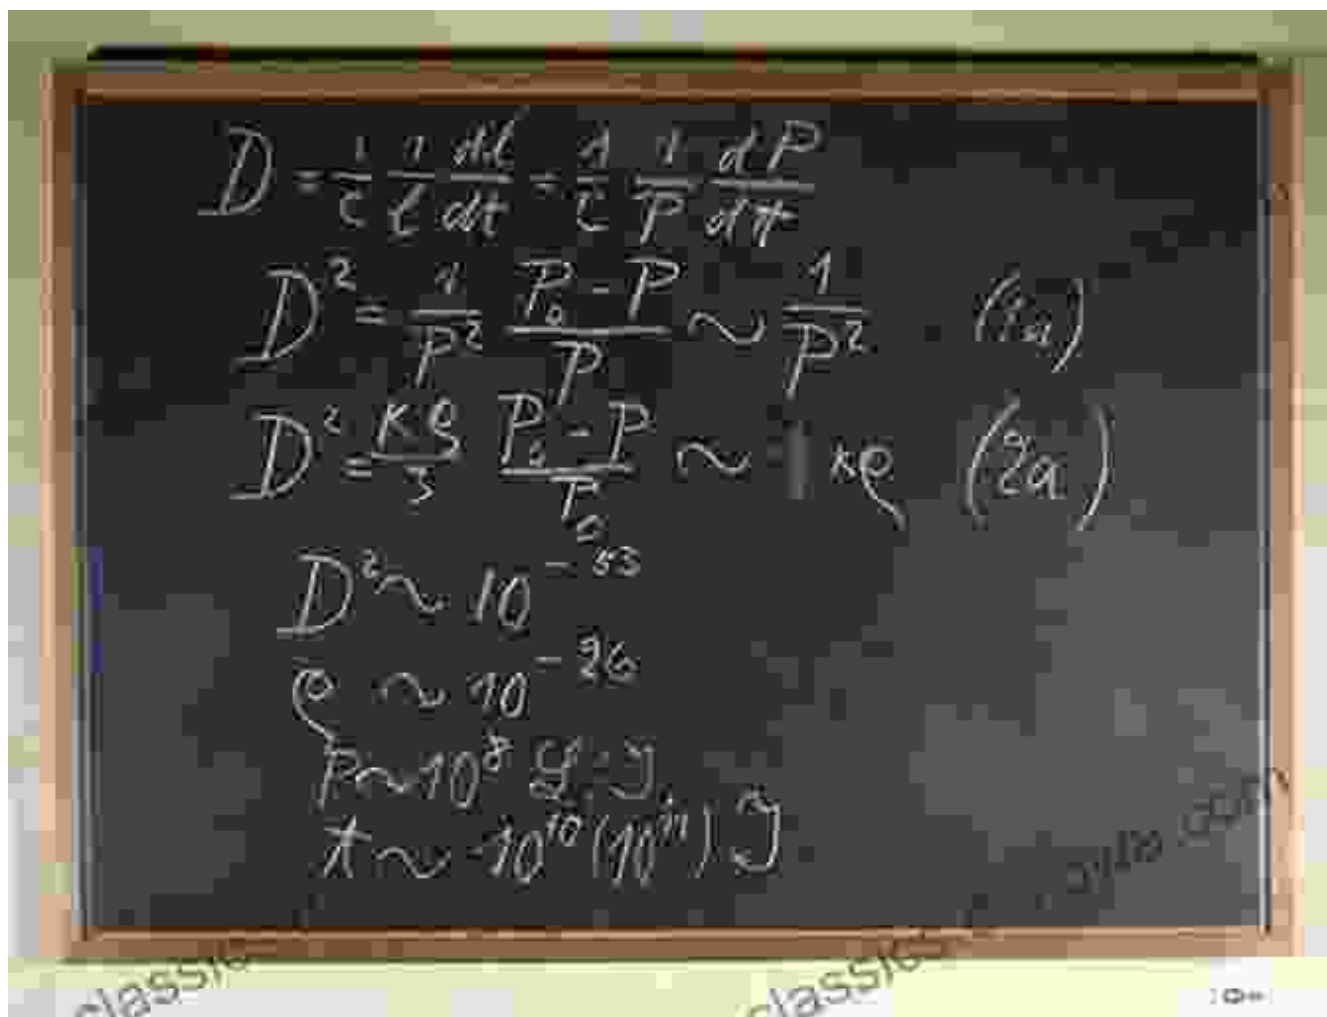 D = 1/c 1/l dl/dt = 1/c 1/P dP/dt
D² = 1/P² (P₀-P)/P ~ 1/P² (1a)
D² = κρ/3 (P₀-P)/P₀ ~ κρ (2a)
D² ~ 10⁻⁵³
ρ ~ 10⁻²⁶
P ~ 10⁸ L.J.
t ~ 10¹⁰(10¹¹) J
classic
classic
.com